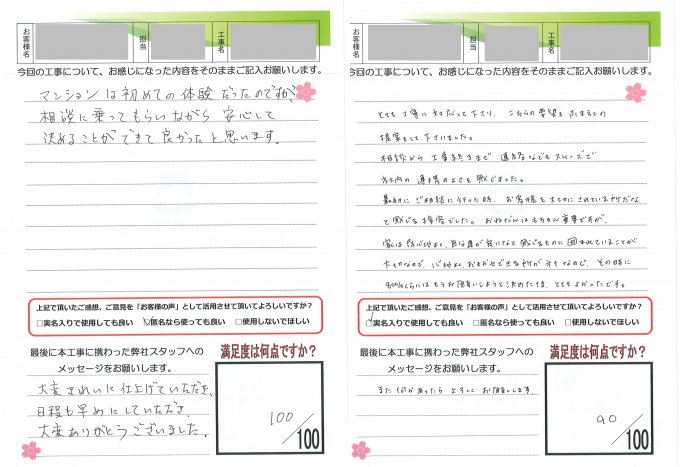 お客様名
担当
工事名
今回の工事について、お感じになった内容をそのままご記入お願いします。
マンションは初めての体験だったのですが、
相談に乗ってもらいながら 安心して
決めることができて良かったと思います。
上記で頂いたご感想、ご意見を「お客様の声」として活用させて頂いてよろしいですか？
□実名入りで使用しても良い □匿名なら使っても良い □使用しないでほしい
最後に本工事に携わった弊社スタッフへの
メッセージをお願いします。
大変きれいに仕上げていただき、
日程も早めにしていただき、
大変ありがとうございました。
満足度は何点ですか？
100/100
お客様名
担当
工事名
今回の工事について、お感じになった内容をそのままご記入お願いします。
とても丁寧に対応して下さり、こちらの要望をふまえての
提案をして下さいました。
相談から工事終了まで 連絡などもスムーズで
社内の連携のよさを感じました。
最初にご相談に行った時、お客様を大切にされている所だな
と感じる接客でした。おねだんはもちろん重要ですが、
家は居心地よく、自分達が良いなと感じるものに囲まれていることが
大切なので、心地よくおまかせできる所が
なので、その時に
80%くらいはもうお願いしようと決めた位、とてもよかったです。
上記で頂いたご感想、ご意見を「お客様の声」として活用させて頂いてよろしいですか？
□実名入りで使用しても良い □匿名なら使っても良い □使用しないでほしい
最後に本工事に携わった弊社スタッフへの
メッセージをお願いします。
また何かあったら よろしく お願いします。
満足度は何点ですか？
90/100